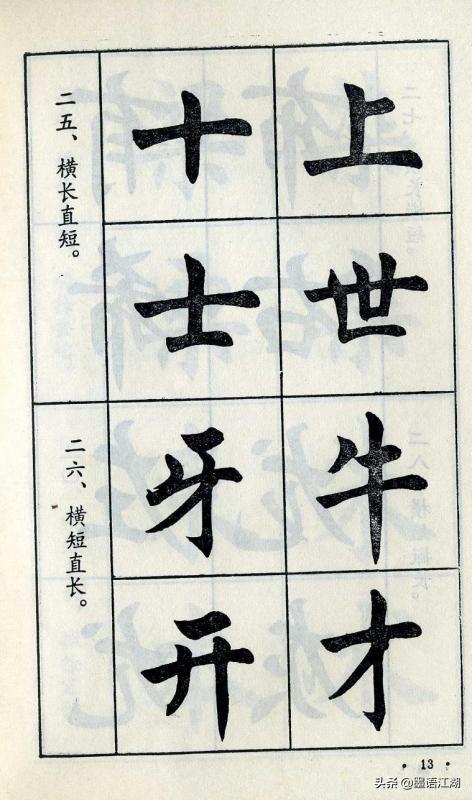 二五、横长直短。
十 上
士 世
二六、横短直长。
牙 牛
开 才
· 13 ·
头条 @墨语江湖